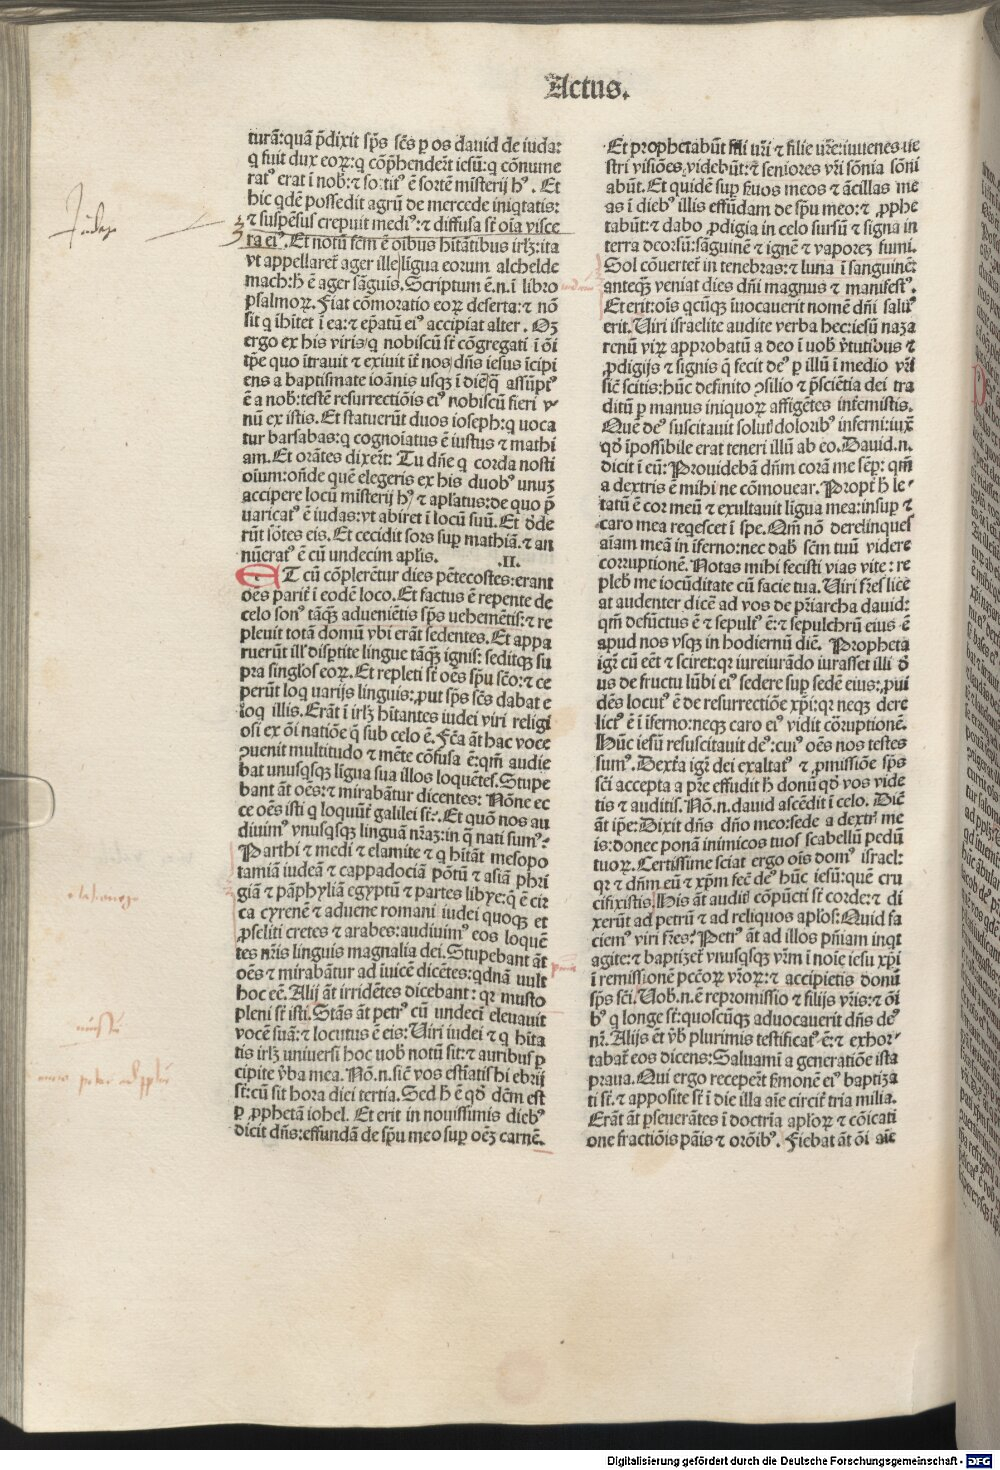 Actus.
turã:quã p̃dixit sp̃s sc̃s ꝑ os dauid de iuda:
q fuit dux eoꝝ:q cõp̃hendert̃ iesũ:q cõnume
ratꝰ erat ĩ nob̃:⁊ sortitꝰ ẽ sortẽ misterij hꝰ. Et
hic qdẽ possedit agrũ de mercede iniqtatis:
⁊ suspẽsus crepuit mediꝰ:⁊ diffusa st̃ oĩa visce
ra eiꝰ. Et notũ fc̃m ẽ oibus hitãtibus irlꝫ:ita
vt appellaret̃ ager ille lĩgua eorum alchelde
mach:h̃ ẽ ager sãguis. Scriptum ẽ.n.ĩ libro
psalmoꝝ. Fiat cõmoratio eoꝝ deserta:⁊ nõ
sit q ĩhĩtet ĩ ea:⁊ ep̃atũ eiꝰ accipiat alter. Oꝫ
ergo ex his viris q nobiscũ st̃ cõgregati ĩ õi
tp̃e quo ĩtrauit ⁊ exiuit ĩt̃ nos dñs iesus ĩcipi
ens a baptismate ioãnis usqꝫ ĩ diẽ q̃ assũptꝰ
ẽ a nob̃:testẽ resurrectiõis eiꝰ nobiscũ fieri v
nũ ex istis. Et statuerũt duos ioseph:q uoca
tur barsabas:q cognoĩatus ẽ iustus ⁊ mathi
am. Et orãtes dixert̃: Tu dñe q corda nosti
oium:oñde quẽ elegeris ex his duobꝰ unuꝫ
accipere locũ misterij hꝰ ⁊ aplatus:de quo p̃
uaricatꝰ ẽ iudas:vt abiret ĩ locũ suũ. Et dede
rũt sõtes eis. Et cecidit sors sup̃ mathiã.⁊ an
nũeratꝰ ẽ cũ undecim apl̃is. .II.
ET cũ cõplerẽtur dies pẽtecostes:erant
oẽs parit̃ ĩ eodẽ loco. Et factus ẽ repente de
celo sonꝰ tãqꝫ̃ adueniẽtis sp̃s uehemẽtis:⁊ re
pleuit totã domũ vbi erãt sedentes. Et appa
ruerũt ill' disp̃tite lingue tãqꝫ̃ ignis: seditqꝫ su
pra singl'os eoꝝ. Et repleti st̃ oẽs sp̃u sc̃o:⁊ ce
perũt loq uarijs linguis:ꝓut sp̃s sc̃s dabat e
loq illis. Erãt ĩ irlꝫ hĩtantes iudei viri religi
osi ex õi natiõe q̃ sub celo ẽ. Fc̃a ãt hac voce
ꝯuenit multitudo ⁊ mẽte cõfusa ẽ:qm̃ audie
bat unusqsqꝫ lĩgua sua illos loquẽtes. Stupe
bant ãt oẽs:⁊ mirabãtur dicentes: Nõne ec
ce oẽs isti q loquũt̃ galilei st̃? Et quõ nos au
diuimꝰ vnusqsqꝫ linguã nr̃aꝫ:in q̃ nati sumꝰ?
Parthi ⁊ medi ⁊ elamite ⁊ q hĩtãt mesopo
tamiã iudeã ⁊ cappadociã põtũ ⁊ asiã phri
giã ⁊ pãphyliã egyptũ ⁊ partes libye:q̃ ẽ cir
ca cyrenẽ ⁊ aduene romani iudei quoqꝫ et
ꝓseliti cretes ⁊ arabes:audiuimꝰ eos loquẽ
tes nr̃is linguis magnalia dei. Stupebant ãt
oẽs ⁊ mirabãtur ad ĩuicẽ dicẽtes:qdnã uult
hoc eẽ. Alij ãt irridẽtes dicebant: qꝛ musto
pleni st̃ isti. Stãs ãt petrꝰ cũ undecĩ eleuauit
vocẽ suã:⁊ locutus ẽ eis: Uiri iudei ⁊ q hĩta
tis irlꝫ uniuersi hoc uob̃ notũ sit:⁊ auribus ꝑ
cipite v̾ba mea. Nõ.n.sic̃ vos estĩatis hi ebrij
st̃:cũ sit hora diei tertia. Sed h̃ ẽ qd̃ dc̃m est
ꝑ ꝓphetã iohel. Et erit in nouissimis diebꝰ
dicit dñs:effundã de sp̃u meo sup̃ oẽꝫ carnẽ.
Et prophetabũt filii vr̃i ⁊ filie vr̃e:iuuenes ue
stri visiões videbũt:⁊ seniores vr̃i sõnia sõni
abũt. Et quidẽ sup̃ s̃uos meos ⁊ ãcillas me
as ĩ diebꝰ illis effũdam de sp̃u meo:⁊ ꝓphe
tabũt:⁊ dabo ꝓdigia in celo sursũ ⁊ signa in
terra deorsũ:sãguinẽ ⁊ ignẽ ⁊ vaporeꝫ fumi.
Sol cõuertet̃ in tenebras:⁊ luna ĩ sanguinẽ:
anteqꝫ̃ veniat dies dñi magnus ⁊ manifestꝰ.
Et erit:oĩs qcũqꝫ ĩuocauerit nomẽ dñi saluꝰ
erit. Uiri israelite audite verba hec:iesũ naza
renũ virꝝ approbatũ a deo ĩ uob̃ v̾tutibus ⁊
ꝓdigijs ⁊ signis q̃ fecit deꝰ ꝑ illũ ĩ medio vr̃i
sic̃ scitis:hũc definito ꝯsilio ⁊ p̃sciẽtia dei tra
ditũ ꝑ manus iniquoꝝ affigẽtes ĩnt̃emistis.
Quẽ deꝰ suscitauit solutꝭ doloribꝰ inferni:iux̃
qd̃ ĩpossibile erat teneri illũ ab eo. Dauid.n.
dicit ĩ eũ: Prouidebã dñm corã me sẽp̃: qm̃
a dextris ẽ mihi ne cõmouear. Propt̃ h̃ le
tatũ ẽ cor meũ ⁊ exultauit ligua mea:insup̃ ⁊
caro mea reqescet ĩ spe. Qm̃ nõ derelinques
aĩam meã ĩ ĩferno:nec dab̃ sc̃m tuũ videre
corruptionẽ. Notas mihi fecisti vias vite: re
pleb̃ me iocũditate cũ facie tua. Uiri fr̃es lice
at audenter dicẽ ad vos de pr̃iarcha dauid:
qm̃ defũctus ẽ ⁊ sepultꝰ ẽ:⁊ sepulchrũ eius ẽ
apud nos vsqꝫ in hodiernũ diẽ. Propheta
igr̃ cũ eẽt ⁊ sciret:qꝛ iureiurãdo iurasset illi d̃
us de fructu lũbi eiꝰ sedere sup̃ sedẽ eius:ꝓui
dẽs locutꝰ ẽ de resurrectiõe xp̃i:qꝛ neqꝫ dere
lictꝰ ẽ ĩ ĩferno:neqꝫ caro eiꝰ vidit corruptionẽ.
Hũc iesũ resuscitauit deꝰ:cuiꝰ oẽs nos testes
sumꝰ. Dext̃a igr̃ dei exaltatꝰ ⁊ ꝓmissiõe sp̃s
sc̃i accepta a pr̃e effudit h̃ donũ qd̃ vos vide
tis ⁊ auditis. Nõ.n.dauid ascẽdit ĩ celo. Dic̃
ãt ip̃e: Dixit dñs dño meo:sede a dextrꝭ me
is:donec ponã inimicos tuos scabellũ pedũ
tuoꝝ. Certissime sciat ergo oĩs domꝰ israel:
qꝛ ⁊ dñm eũ ⁊ xp̃m fec̃ deꝰ hũc iesũ:quẽ cru
cifixistis. His ãt auditꝭ cõpũcti st̃ corde:⁊ di
xerũt ad petrũ ⁊ ad reliquos apl̃os: Quid fa
ciemꝰ viri fr̃es? Petrꝰ ãt ad illos pñiam inqt
agite:⁊ baptizet̃ vnusqsqꝫ vr̃m ĩ noĩe iesu xp̃i
ĩ remissionẽ pcc̃oꝝ vr̃oꝝ:⁊ accipietis donũ
sp̃s sc̃i. Uob̃.n.ẽ repromissio ⁊ filijs vr̃is:⁊ õi
bꝰ q longe st̃:quoscũqꝫ aduocauerit dñs deꝰ
nr̃. Alijs ẽt v̾b̃ plurimis testificatꝰ ẽ:⁊ exhor
tabat̃ eos dicens: Saluamĩ a generatiõe ista
praua. Qui ergo recepert̃ s̃monẽ eiꝰ baptiza
ti st̃:⁊ apposite st̃ ĩ die illa aĩe circit̃ tria milia.
Erãt ãt ꝑseuerãtes ĩ doctrĩa apl̃oꝝ ⁊ cõicati
one fractiõis pãis ⁊ orõibꝰ. Fiebat ãt õi aĩe
Digitalisierung gefördert durch die Deutsche Forschungsgemeinschaft - DFG